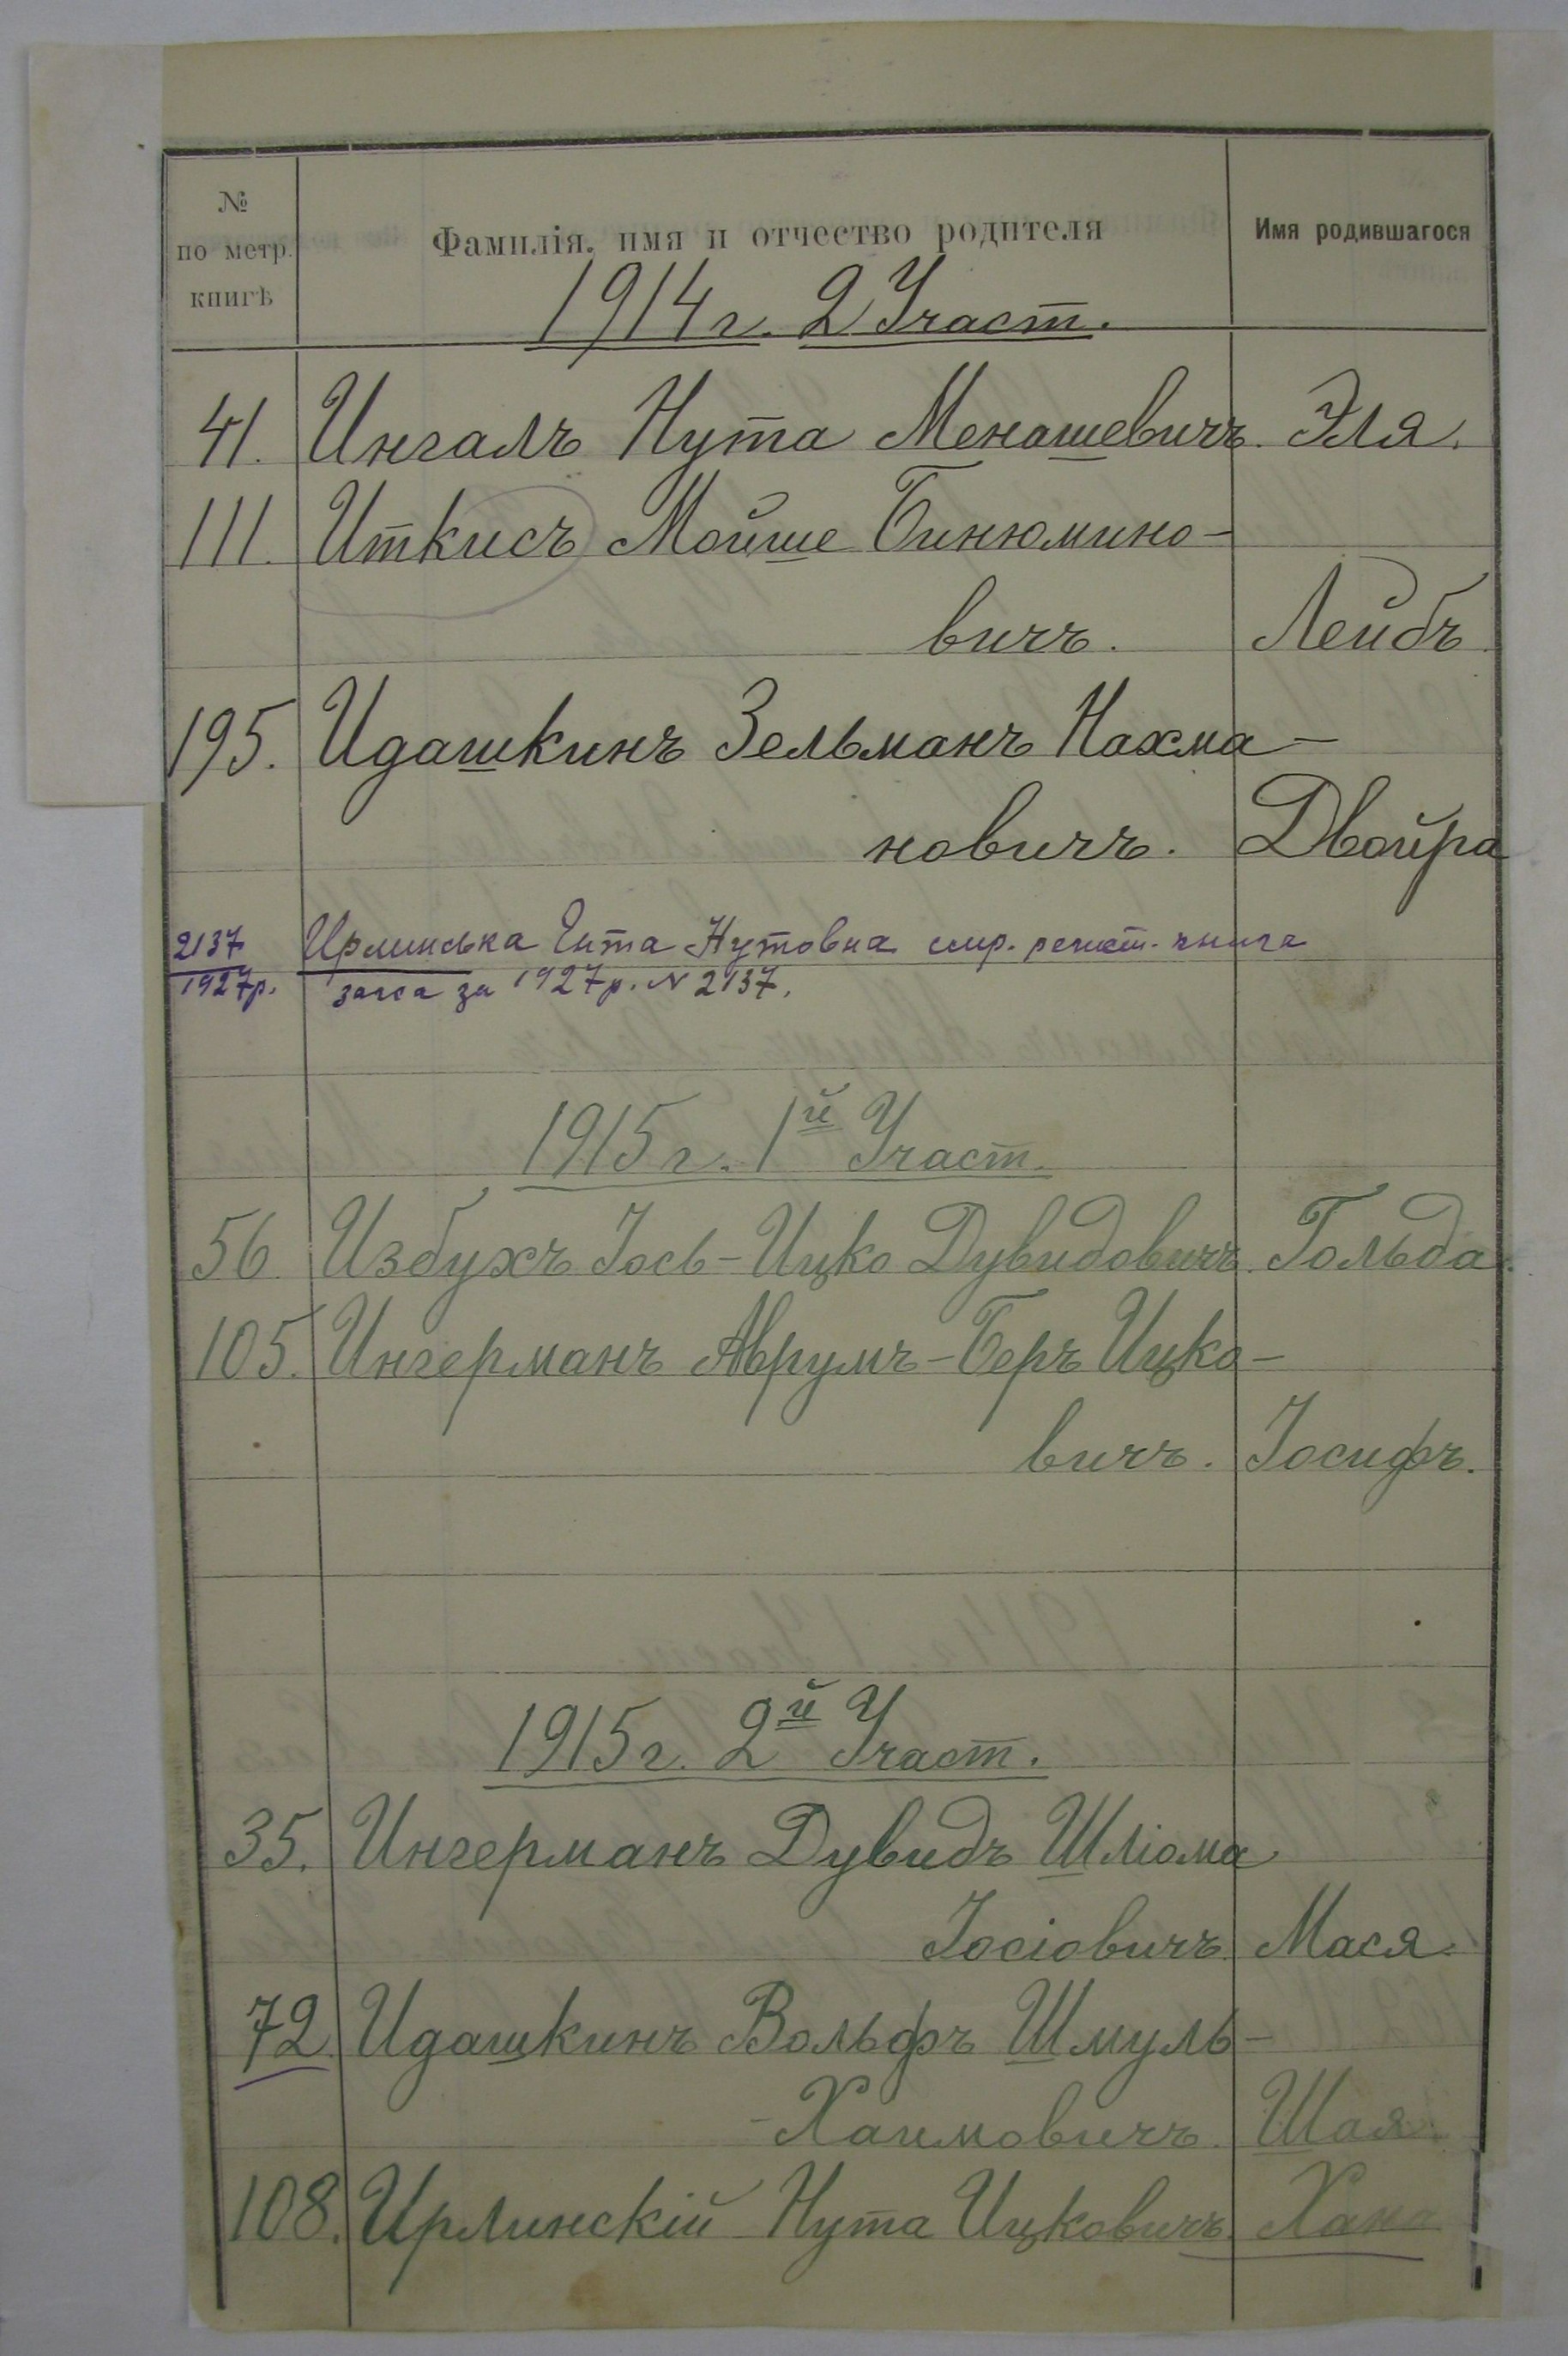 № по метр. книгѣ Фамилія, имя и отчество родителя Имя родившагося
1914 г. 2 Участ.
41. Ингалъ Нута Менашевичъ. Эля.
111. Иткисъ Мойше Бинюмино-
вичъ. Лейбъ.
195. Идашкинъ Зельманъ Нахма-
новичъ. Двойра
2137 Ирлинська Ента Нутовна
1927р. загса за 1927р. N 2137.
1915 г. 1й Участ.
56. Избухъ Іось-Ицко Дувидовичъ. Гольда.
105. Ингерманъ Аврумъ-Беръ Ицко-
вичъ. Іосифъ.
1915 г. 2й Участ.
35. Ингерманъ Дувидъ Шліома
Іосіовичъ. Мася.
72. Идашкинъ Вольфъ Шмуль-
-Хаимовичъ. Шая.
108. Ирлинскій Нута Ицковичъ. Хана